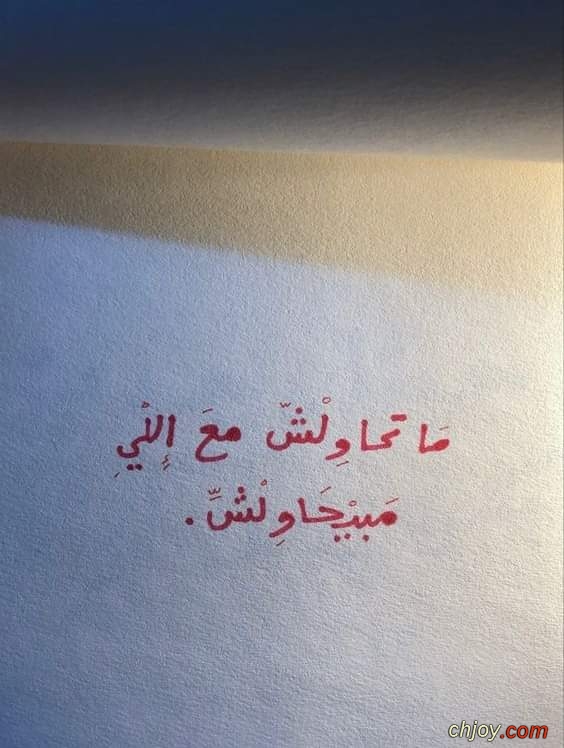 مَا تحاوِلْشّ معَ إِللْيِ
مَبيْحَاوِلْشِّ.
chjoy.com